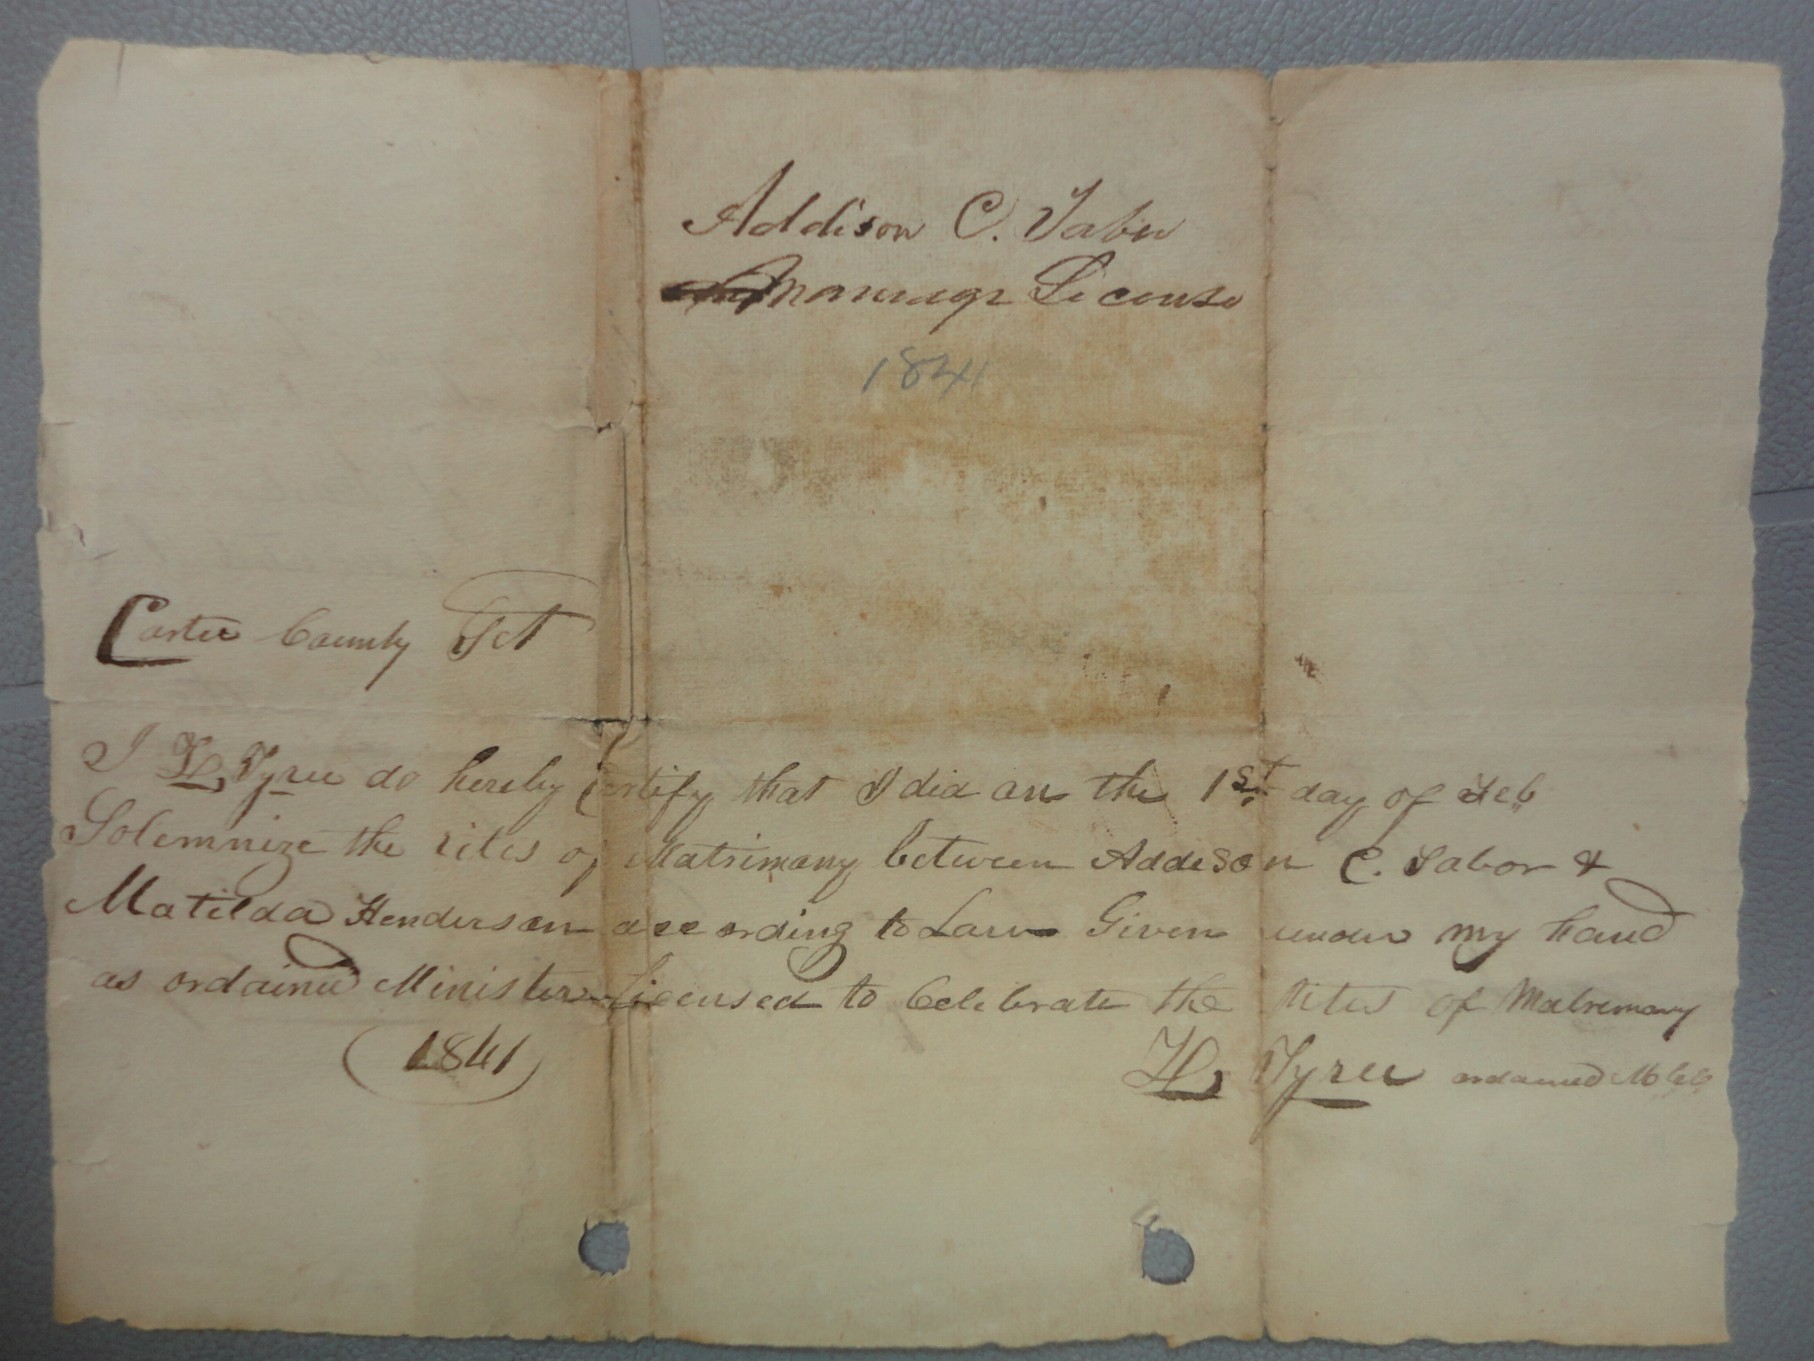 Addison C. Tabor
Marriage License
1841
Carter County Sct
I H Tyree do hereby certify that I did on the 1st day of Feb
Solemnize the rites of Matrimony between Addison C. Tabor &
Matilda Henderson according to Law Given under my hand
as ordained Minister Licensed to Celebrate the rites of Matrimony
1841
H Tyree ordained